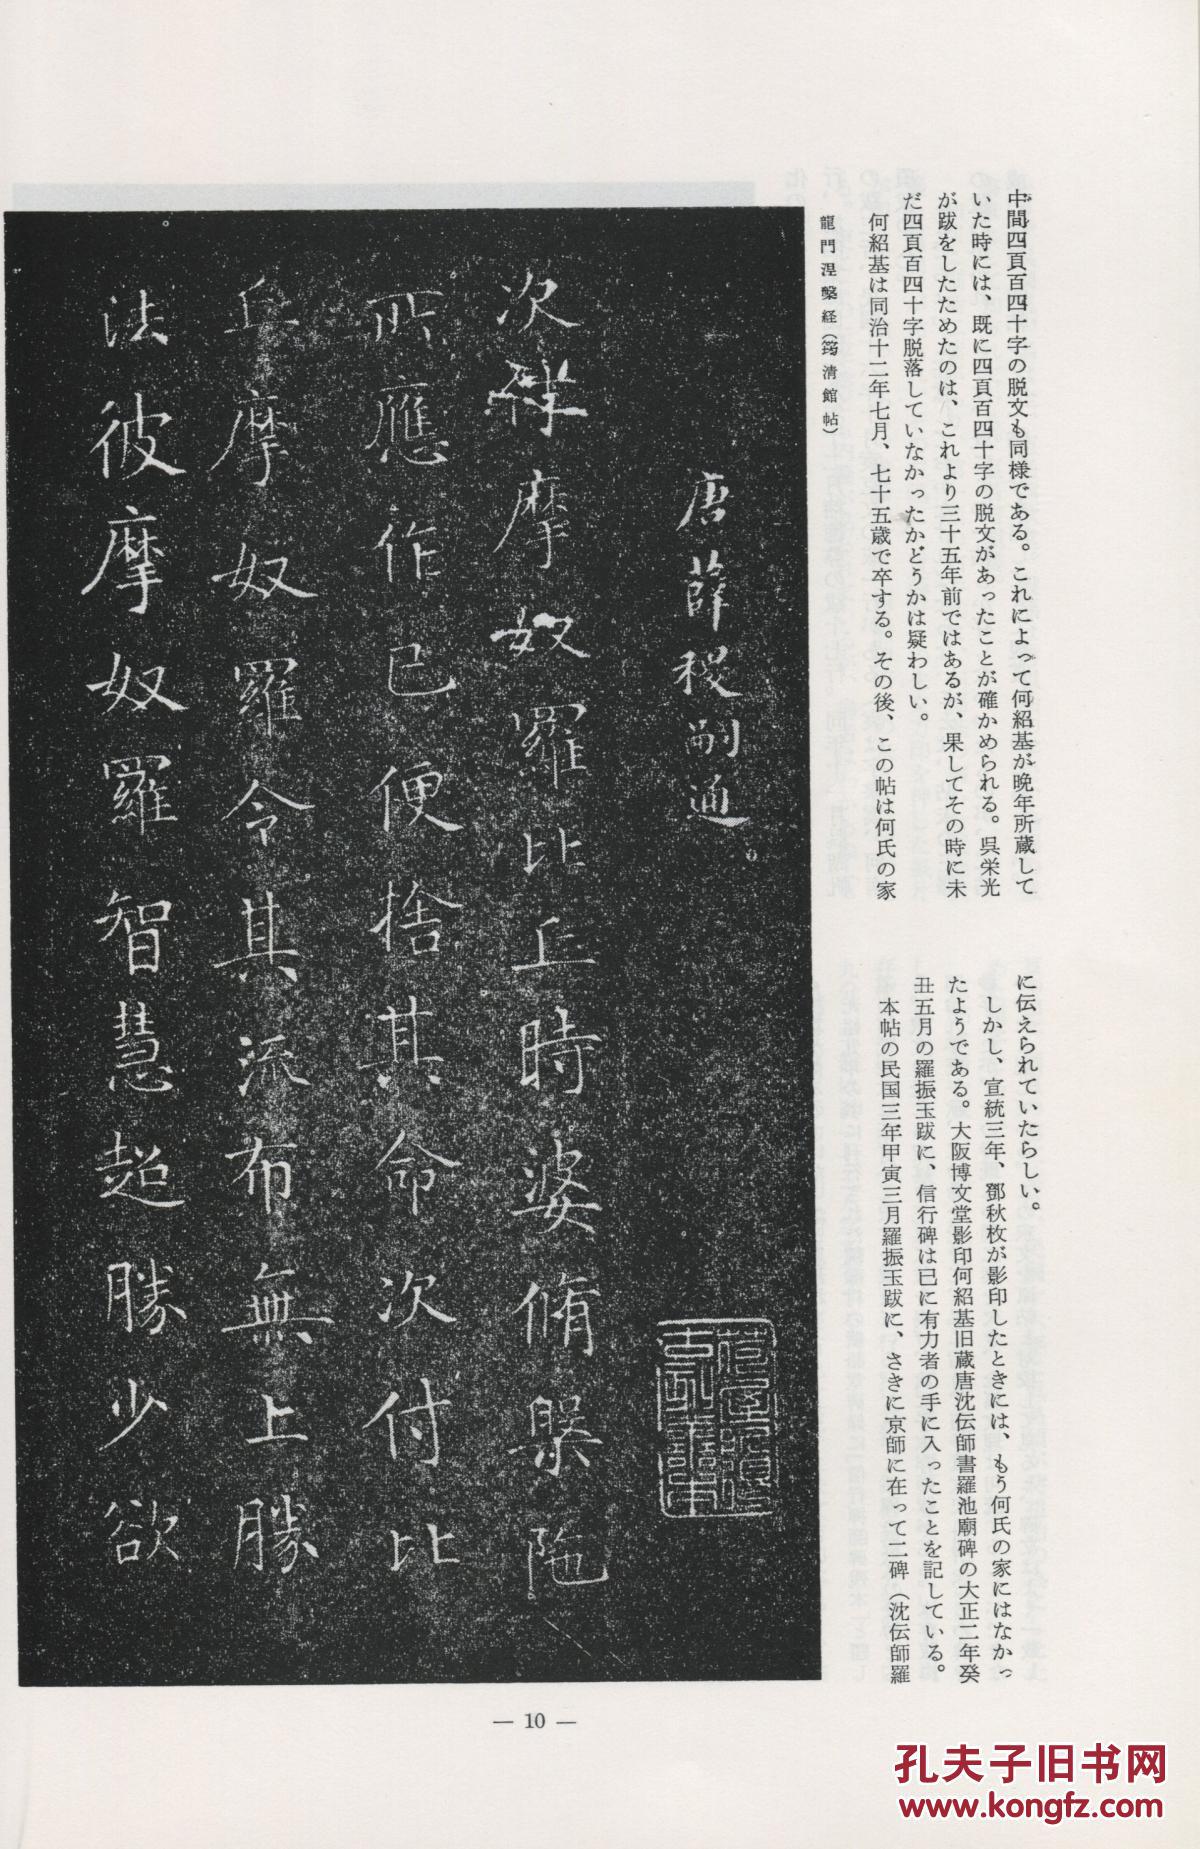 中間四頁百四十字の脱文も同様である。これによって何紹基が晩年所蔵して
いた時には、既に四頁百四十字の脱文があったことが確かめられる。呉栄光
が跋をしたためたのは、これより三十五年前ではあるが、果してその時に未
だ四頁百四十字脱落していなかったかどうかは疑わしい。
何紹基は同治十二年七月、七十五歳で卒する。その後、この帖は何氏の家
に伝えられていたらしい。
しかし、宣統三年、鄧秋枚が影印したときには、もう何氏の家にはなかっ
たようである。大阪博文堂影印何紹基旧蔵唐沈伝師書羅池廟碑の大正二年癸
丑五月の羅振玉跋に、信行碑は已に有力者の手に入ったことを記している。
本帖の民国三年甲寅三月羅振玉跋に、さきに京師に在って二碑（沈伝師羅
龍門涅槃経（筠清館帖）
唐薛稷嗣通
次律摩奴羅比丘時婆脩槃陁
所應作已便捨其命次付比
丘摩奴羅令其流布無上勝
法彼摩奴羅智慧超勝少欲
— 10 —
孔夫子旧书网
www.kongfz.com